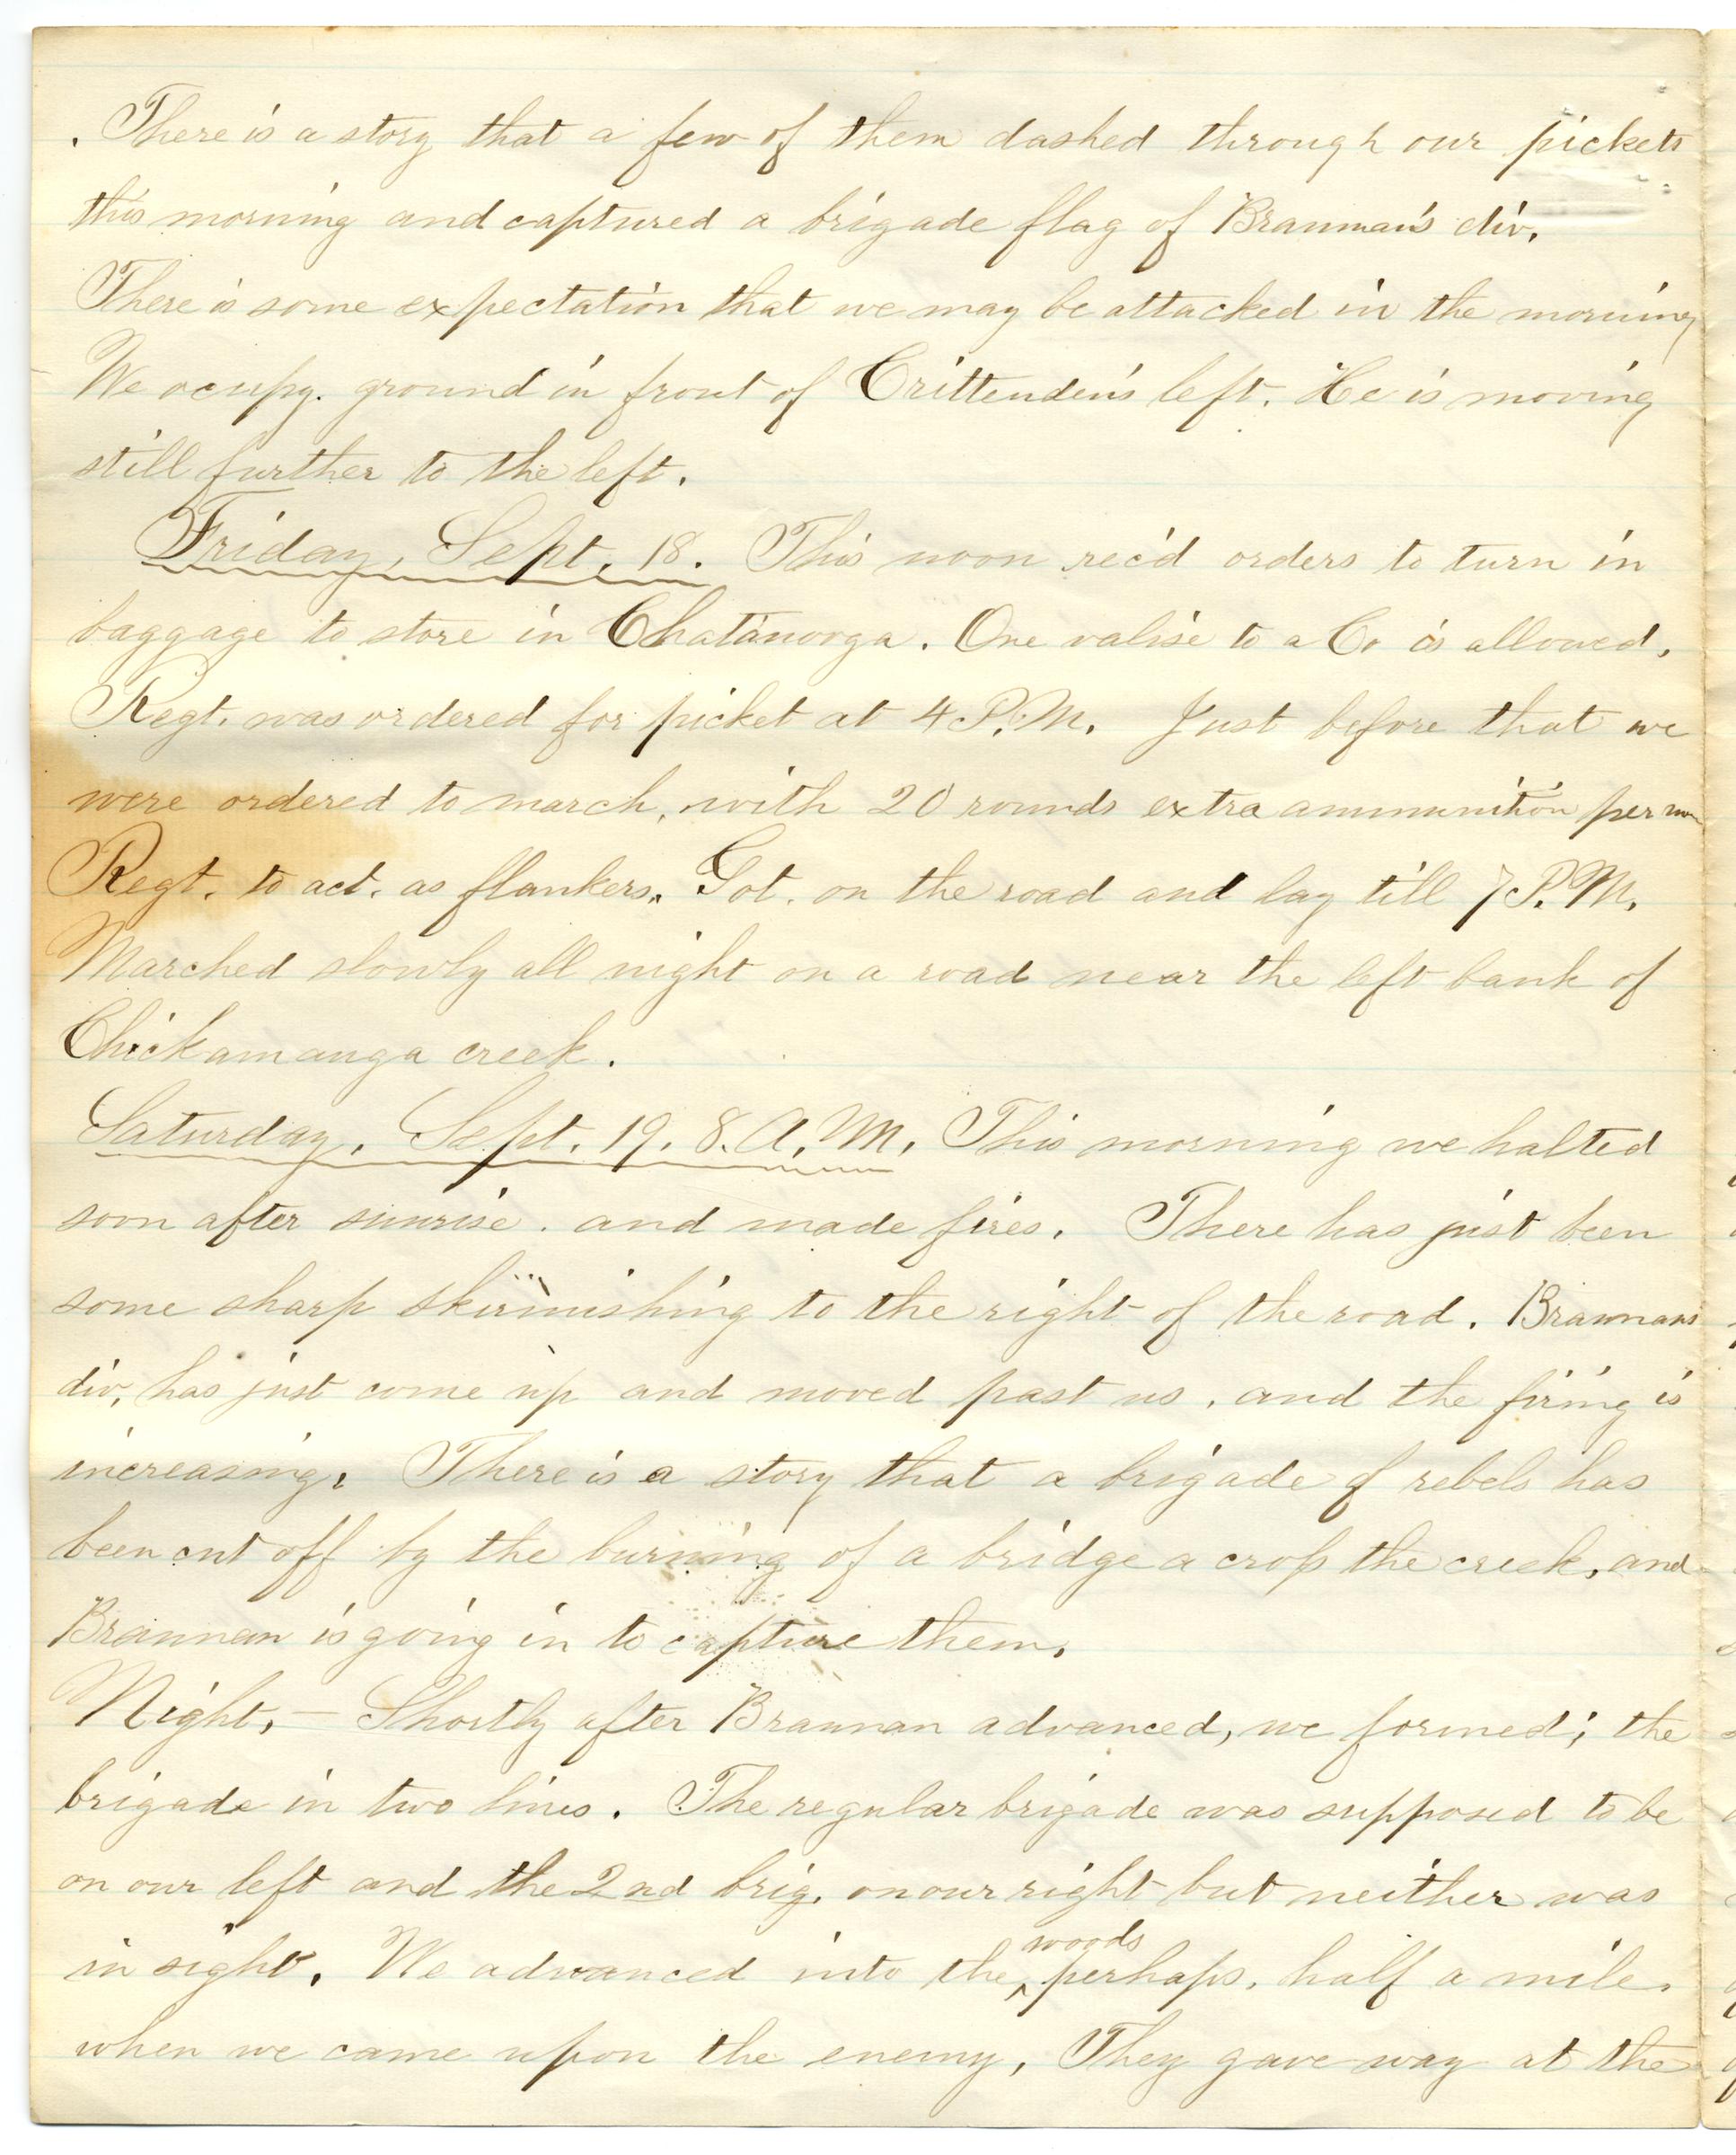 . There is a story that a few of them dashed through our pickets
this morning and captured a brigade flag of Brannan's div.
There is some expectation that we may be attacked in the morning
We ocupy. ground in front of Crittenden's left. He is moving
still further to the left.
Friday, Sept. 18. This noon rec'd orders to turn in
baggage to store in Chatanooga. One valise to a Co is allowed.
Regt. was ordered for picket at 4 P.M. Just before that we
were ordered to march, with 20 rounds extra ammunition per man
Regt. to act. as flankers. Got. on the road and lay till 7 P.M.
Marched slowly all night on a road near the left bank of
Chickamauga creek.
Saturday, Sept. 19. 8. A.M. This morning we halted
soon after sunrise. and made fires. There has just been
some sharp skirmishing to the right of the road. Brannans
div, has just come up and moved past us, and the firing is
increasing. There is a story that a brigade of rebels has
been cut off by the burning of a bridge across the creek, and
Brannan is going in to capture them.
Night, — Shortly after Brannan advanced, we formed; the
brigade in two lines. The regular brigade was supposed to be
on our left and the 2nd brig. on our right but neither was
in sight. We advanced into the woods perhaps, half a mile.
when we came upon the enemy, They gave way at the